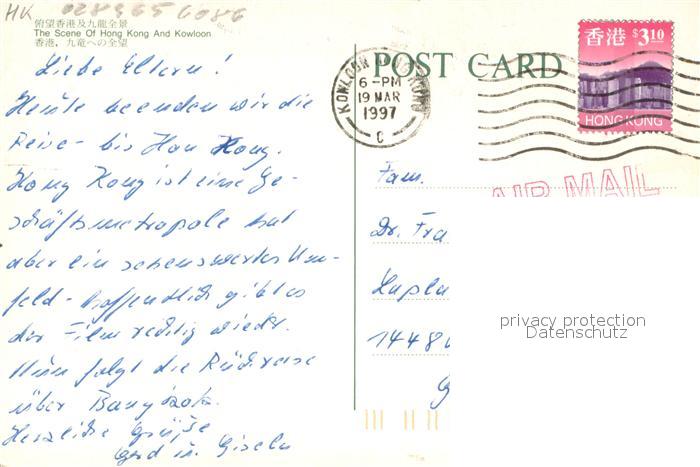 HK 028965 6086
俯望香港及九龍全景
The Scene Of Hong Kong And Kowloon
香港，九竜への全望
Liebe Eltern!
Heute beenden wir die
Reise - bis Hon Kong.
Hong Kong ist eine Ge-
schäftsmetropole hat
aber ein sehenswertes Um-
feld - hoffentlich gibt es
der Film richtig wieder.
Nun folgt die Rückreise
über Bangkok.
Herzliche Grüße
Gerd u. Gisela
POST CARD
KOWLOON HONG KONG
6 - PM
19 MAR
1997
C
香港 $3.10
HONG KONG
AIR MAIL
Fam.
Dr. Fra
1448
privacy protection
Datenschutz